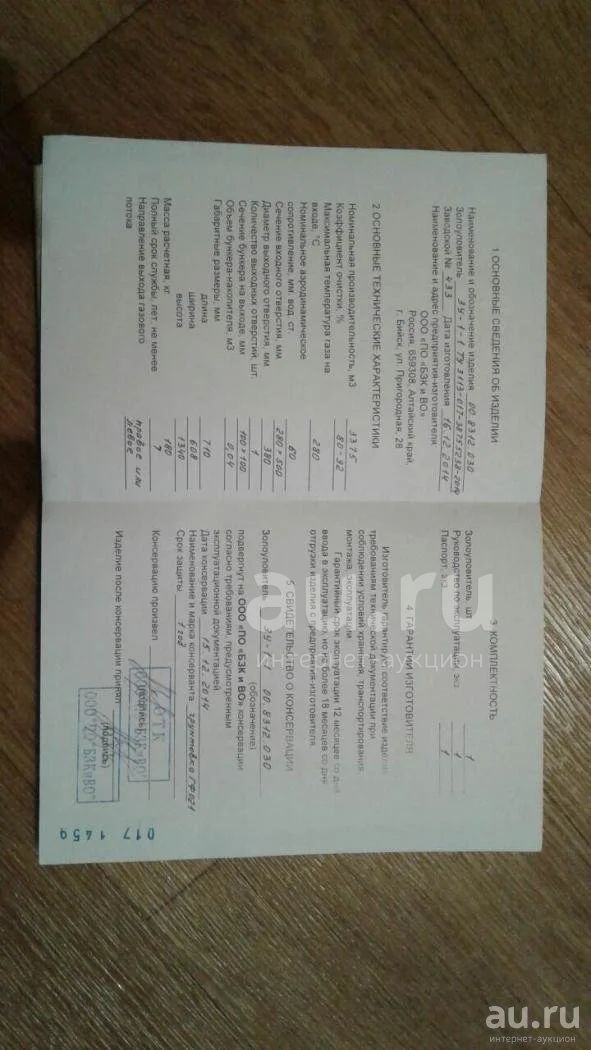 1 ОСНОВНЫЕ СВЕДЕНИЯ ОБ ИЗДЕЛИИ
Наименование и обозначение изделия 00 8312 030
Золоуловитель ЗУ-1-1 ТУ 3113-017-
Заводской № 433 Дата изготовления 16.12.2014
Наименование и адрес предприятия-изготовителя
ООО «ПО «БЗК и ВО»
Россия, 659308, Алтайский край,
г. Бийск, ул. Пригородная, 28
2 ОСНОВНЫЕ ТЕХНИЧЕСКИЕ ХАРАКТЕРИСТИКИ
Номинальная производительность, м3 3375
Коэффициент очистки, % 80-92
Максимальная температура газа на
входе, °С 280
Номинальное аэродинамическое
сопротивление, мм. вод. ст. 60
Сечение входного отверстия, мм 280×500
Диаметр выходного отверстия, мм 380
Количество выходных отверстий, шт. 1
Сечение бункера на выходе, мм 100×100
Объем бункера-накопителя, м3 0,04
Габаритные размеры, мм
длина 710
ширина 608
высота 1340
Масса расчетная, кг 180
Полный срок службы, лет, не менее 7
Направление выхода газового
потока правое или
левое
3 КОМПЛЕКТНОСТЬ
Золоуловитель, шт. 1
Руководство по эксплуатации, экз. 1
Паспорт, экз. 1
4 ГАРАНТИИ ИЗГОТОВИТЕЛЯ
Изготовитель гарантирует соответствие изделия
требованиям технической документации при
соблюдении условий хранения, транспортирования,
монтажа, эксплуатации.
Гарантийный срок эксплуатации 12 месяцев со дня
ввода в эксплуатацию, но не более 18 месяцев со дня
отгрузки изделия с предприятия-изготовителя.
5 СВИДЕТЕЛЬСТВО О КОНСЕРВАЦИИ
Золоуловитель ЗУ-1-1 00 8312 030
(обозначение)
подвергнут на ООО «ПО «БЗК и ВО» консервации
согласно требованиям, предусмотренным
эксплуатационной документацией.
Дата консервации 15.12.2014
Наименование и марка консерванта грунтовка ГФ021
Срок защиты 1 год
Консервацию произвел
(подпись)
ОТК
"БЗК и ВО"
Изделие после консервации принял
(подпись)
ООО "ПО "БЗК и ВО"
017 1459
au.ru
интернет-аукцион
au.ru
интернет-аукцион